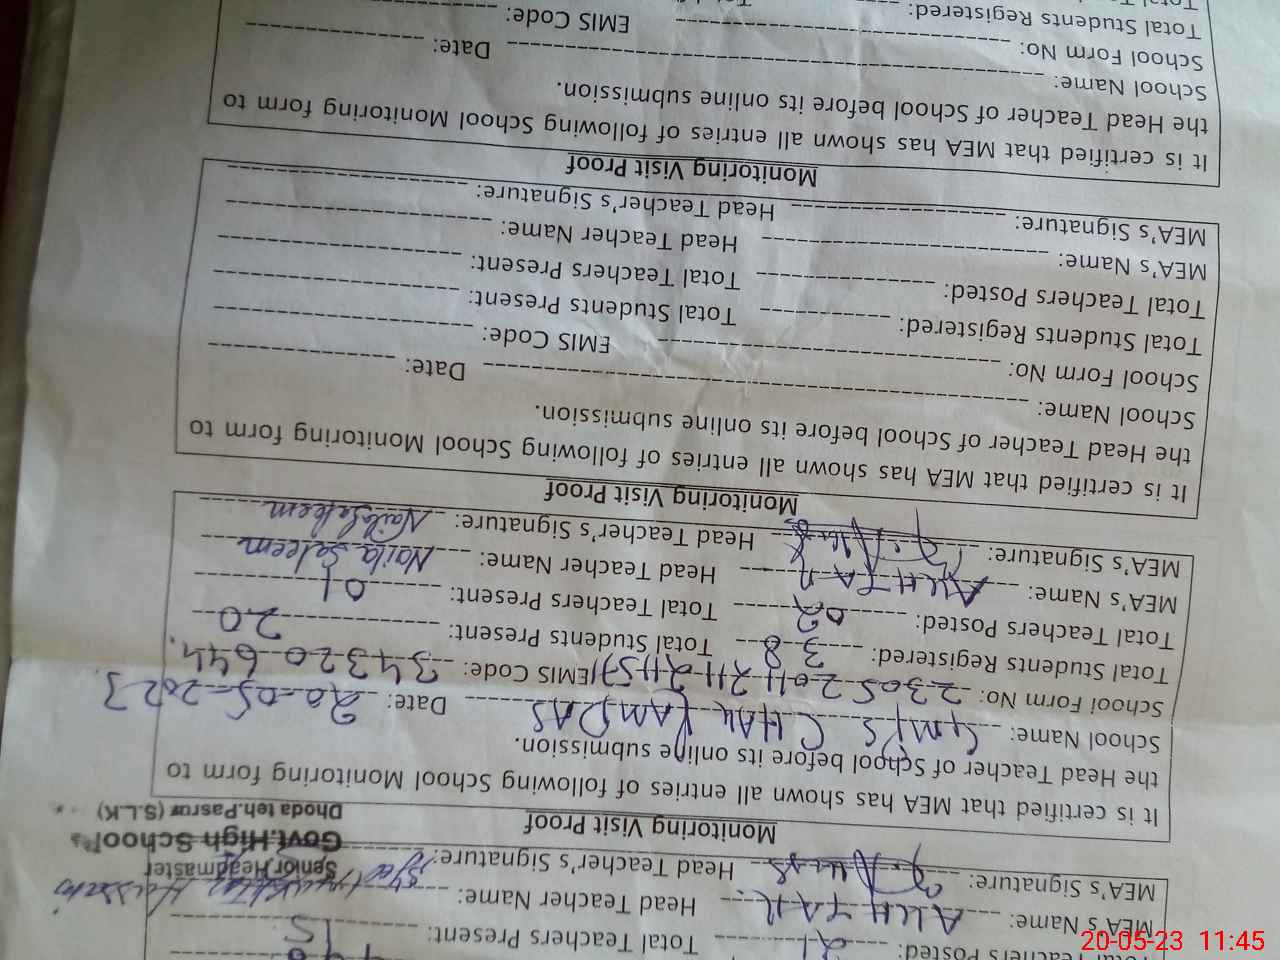 Total Teachers Posted: 21 Total Teachers Present: 15
MEA's Name: Head Teacher Name:
MEA's Signature: Head Teacher's Signature:
Senior Headmaster
Govt.High School
Dhoda teh.Pasrur (S.L.K)
Monitoring Visit Proof
It is certified that MEA has shown all entries of following School Monitoring form to
the Head Teacher of School before its online submission.
School Name: GMPS CHAK RAMDAS Date: 20-05-2023
School Form No: EMIS Code: 34320644
Total Students Registered: 38 Total Students Present: 20
Total Teachers Posted: 02 Total Teachers Present: 01
MEA's Name: Head Teacher Name: Naila Saleem
MEA's Signature: Head Teacher's Signature: Naila Saleem
Monitoring Visit Proof
It is certified that MEA has shown all entries of following School Monitoring form to
the Head Teacher of School before its online submission.
School Name: Date:
School Form No: EMIS Code:
Total Students Registered: Total Students Present:
Total Teachers Posted: Total Teachers Present:
MEA's Name: Head Teacher Name:
MEA's Signature: Head Teacher's Signature:
Monitoring Visit Proof
It is certified that MEA has shown all entries of following School Monitoring form to
the Head Teacher of School before its online submission.
School Name: Date:
School Form No: EMIS Code:
Total Students Registered:
20-05-23 11:45